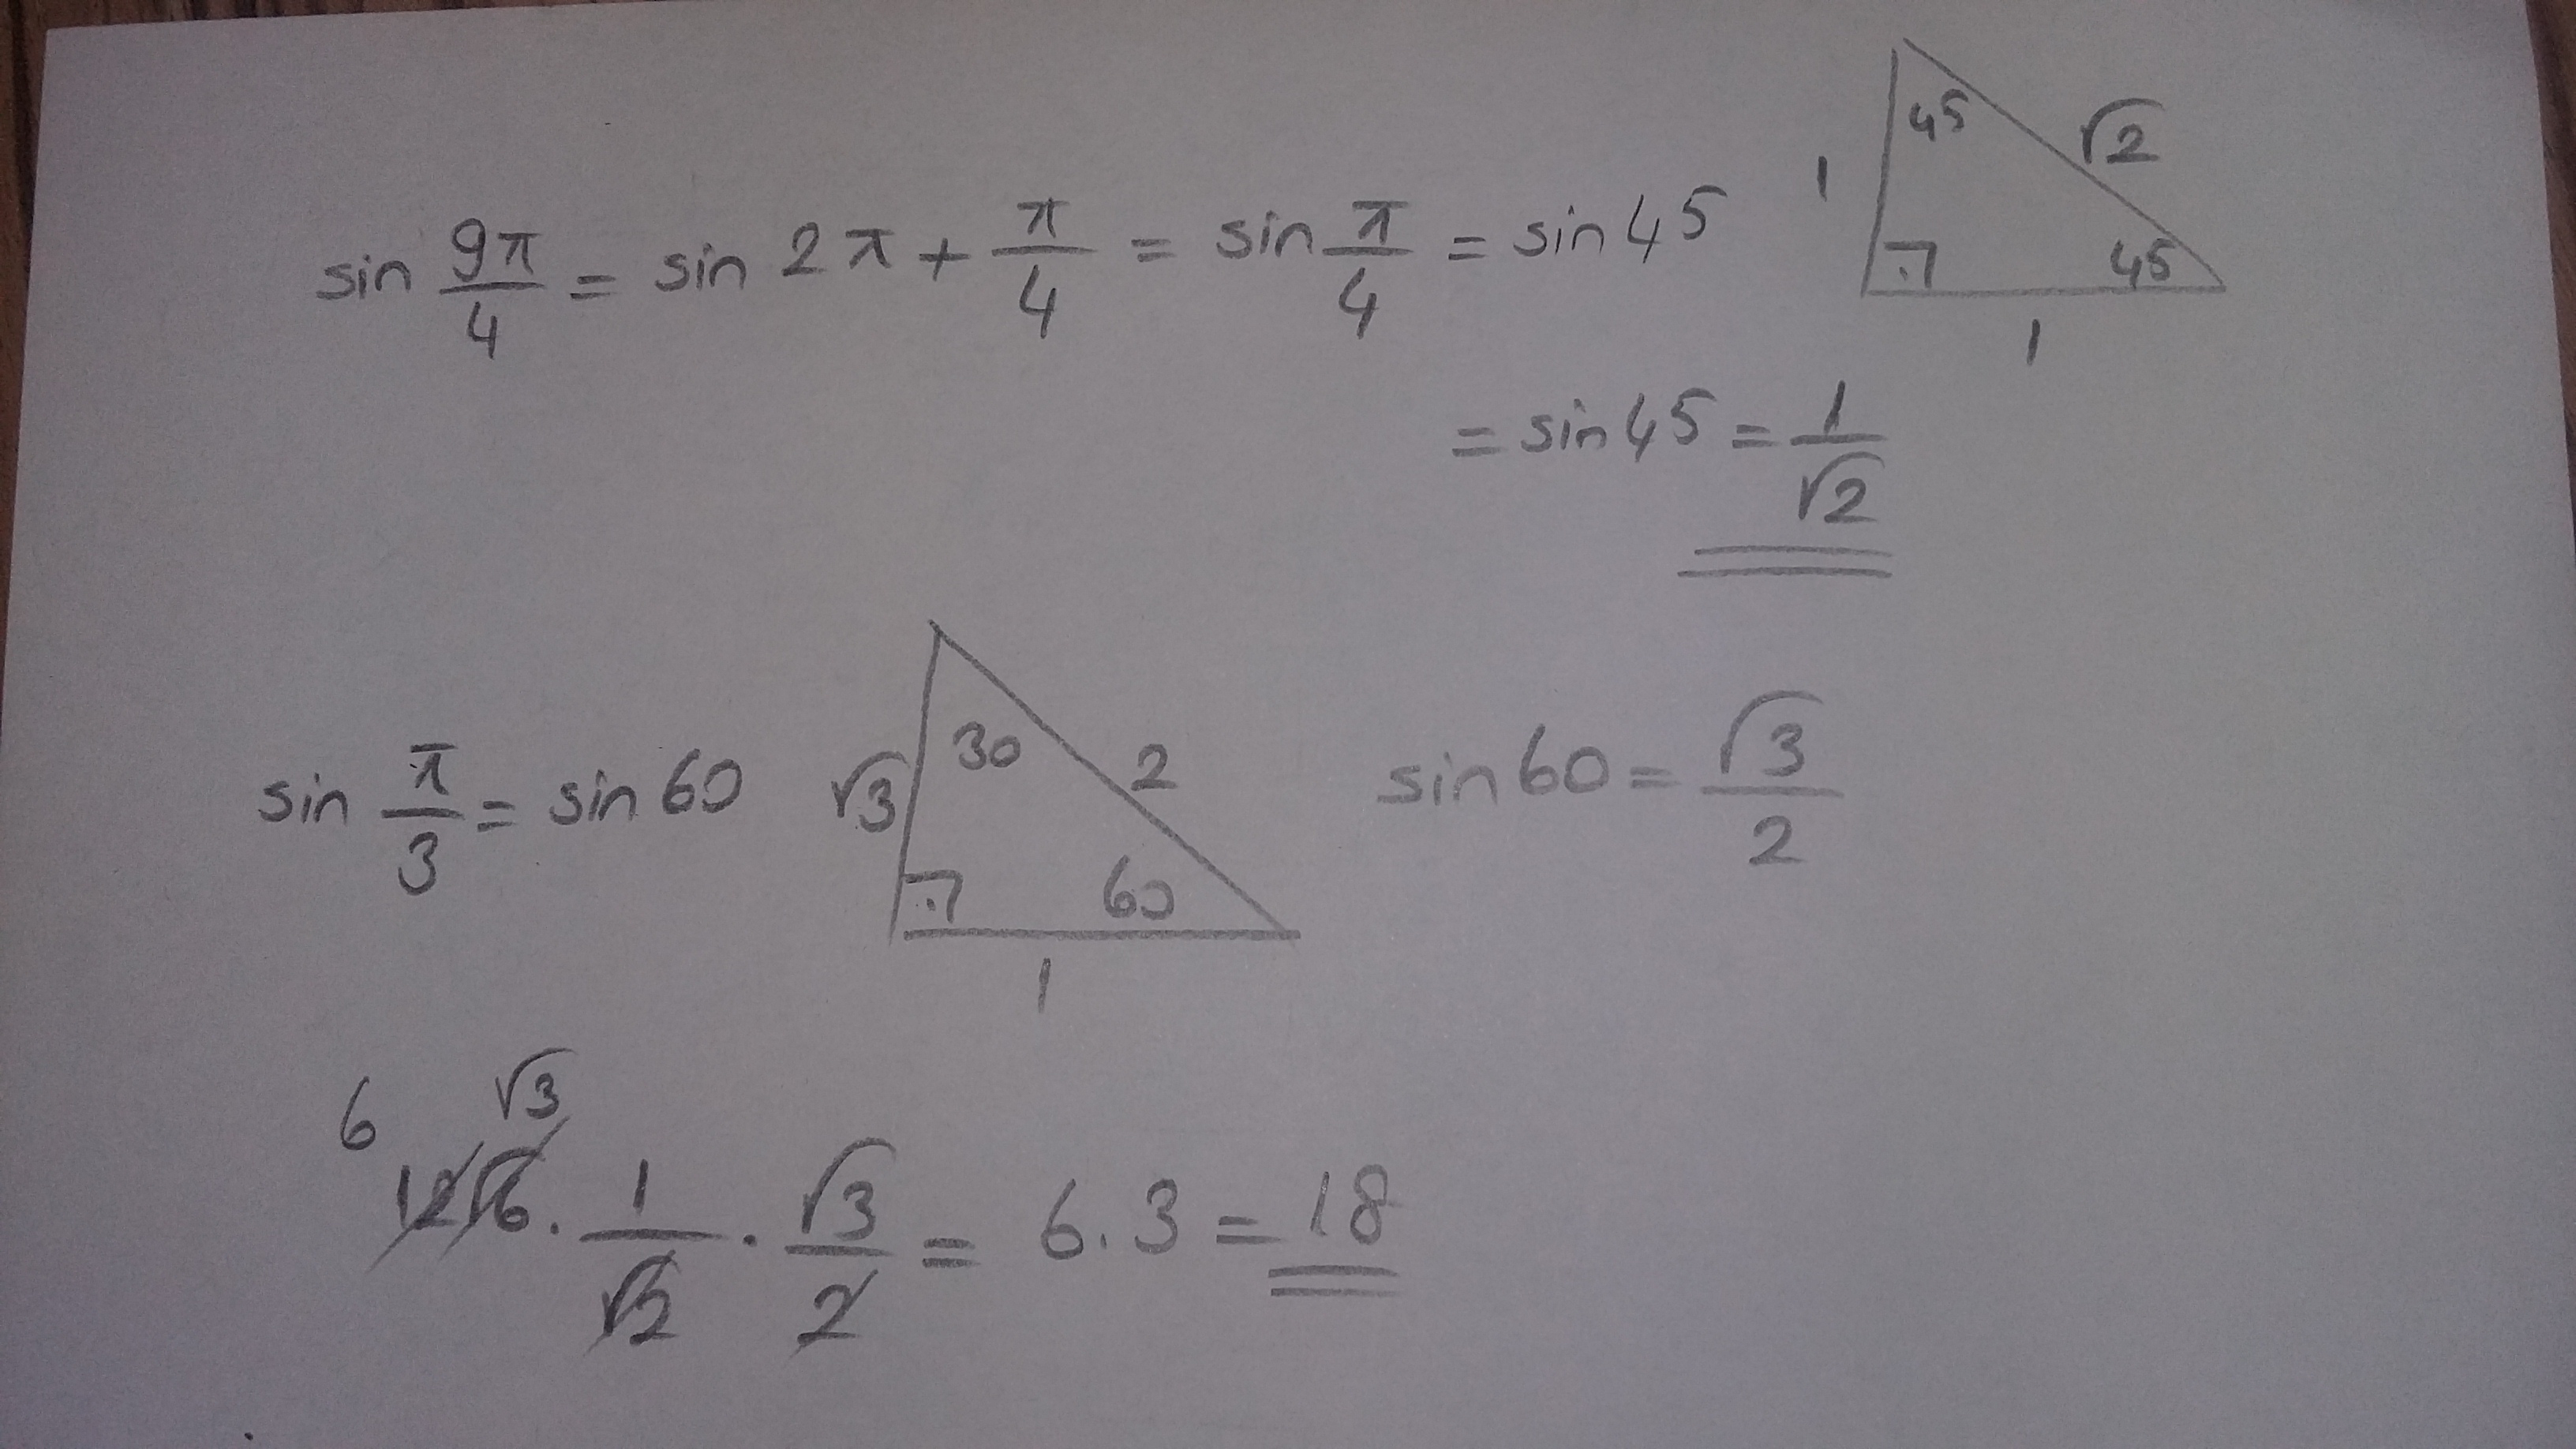 sin 9π/4 = sin 2π + π/4 = sin π/4 = sin 45
45 √2 1 45 1
= sin 45 = 1/√2
sin π/3 = sin 60 √3 30 2 60 1 sin 60 = √3/2
6 √3
12√6 . 1/√2 . √3/2 = 6.3 = 18